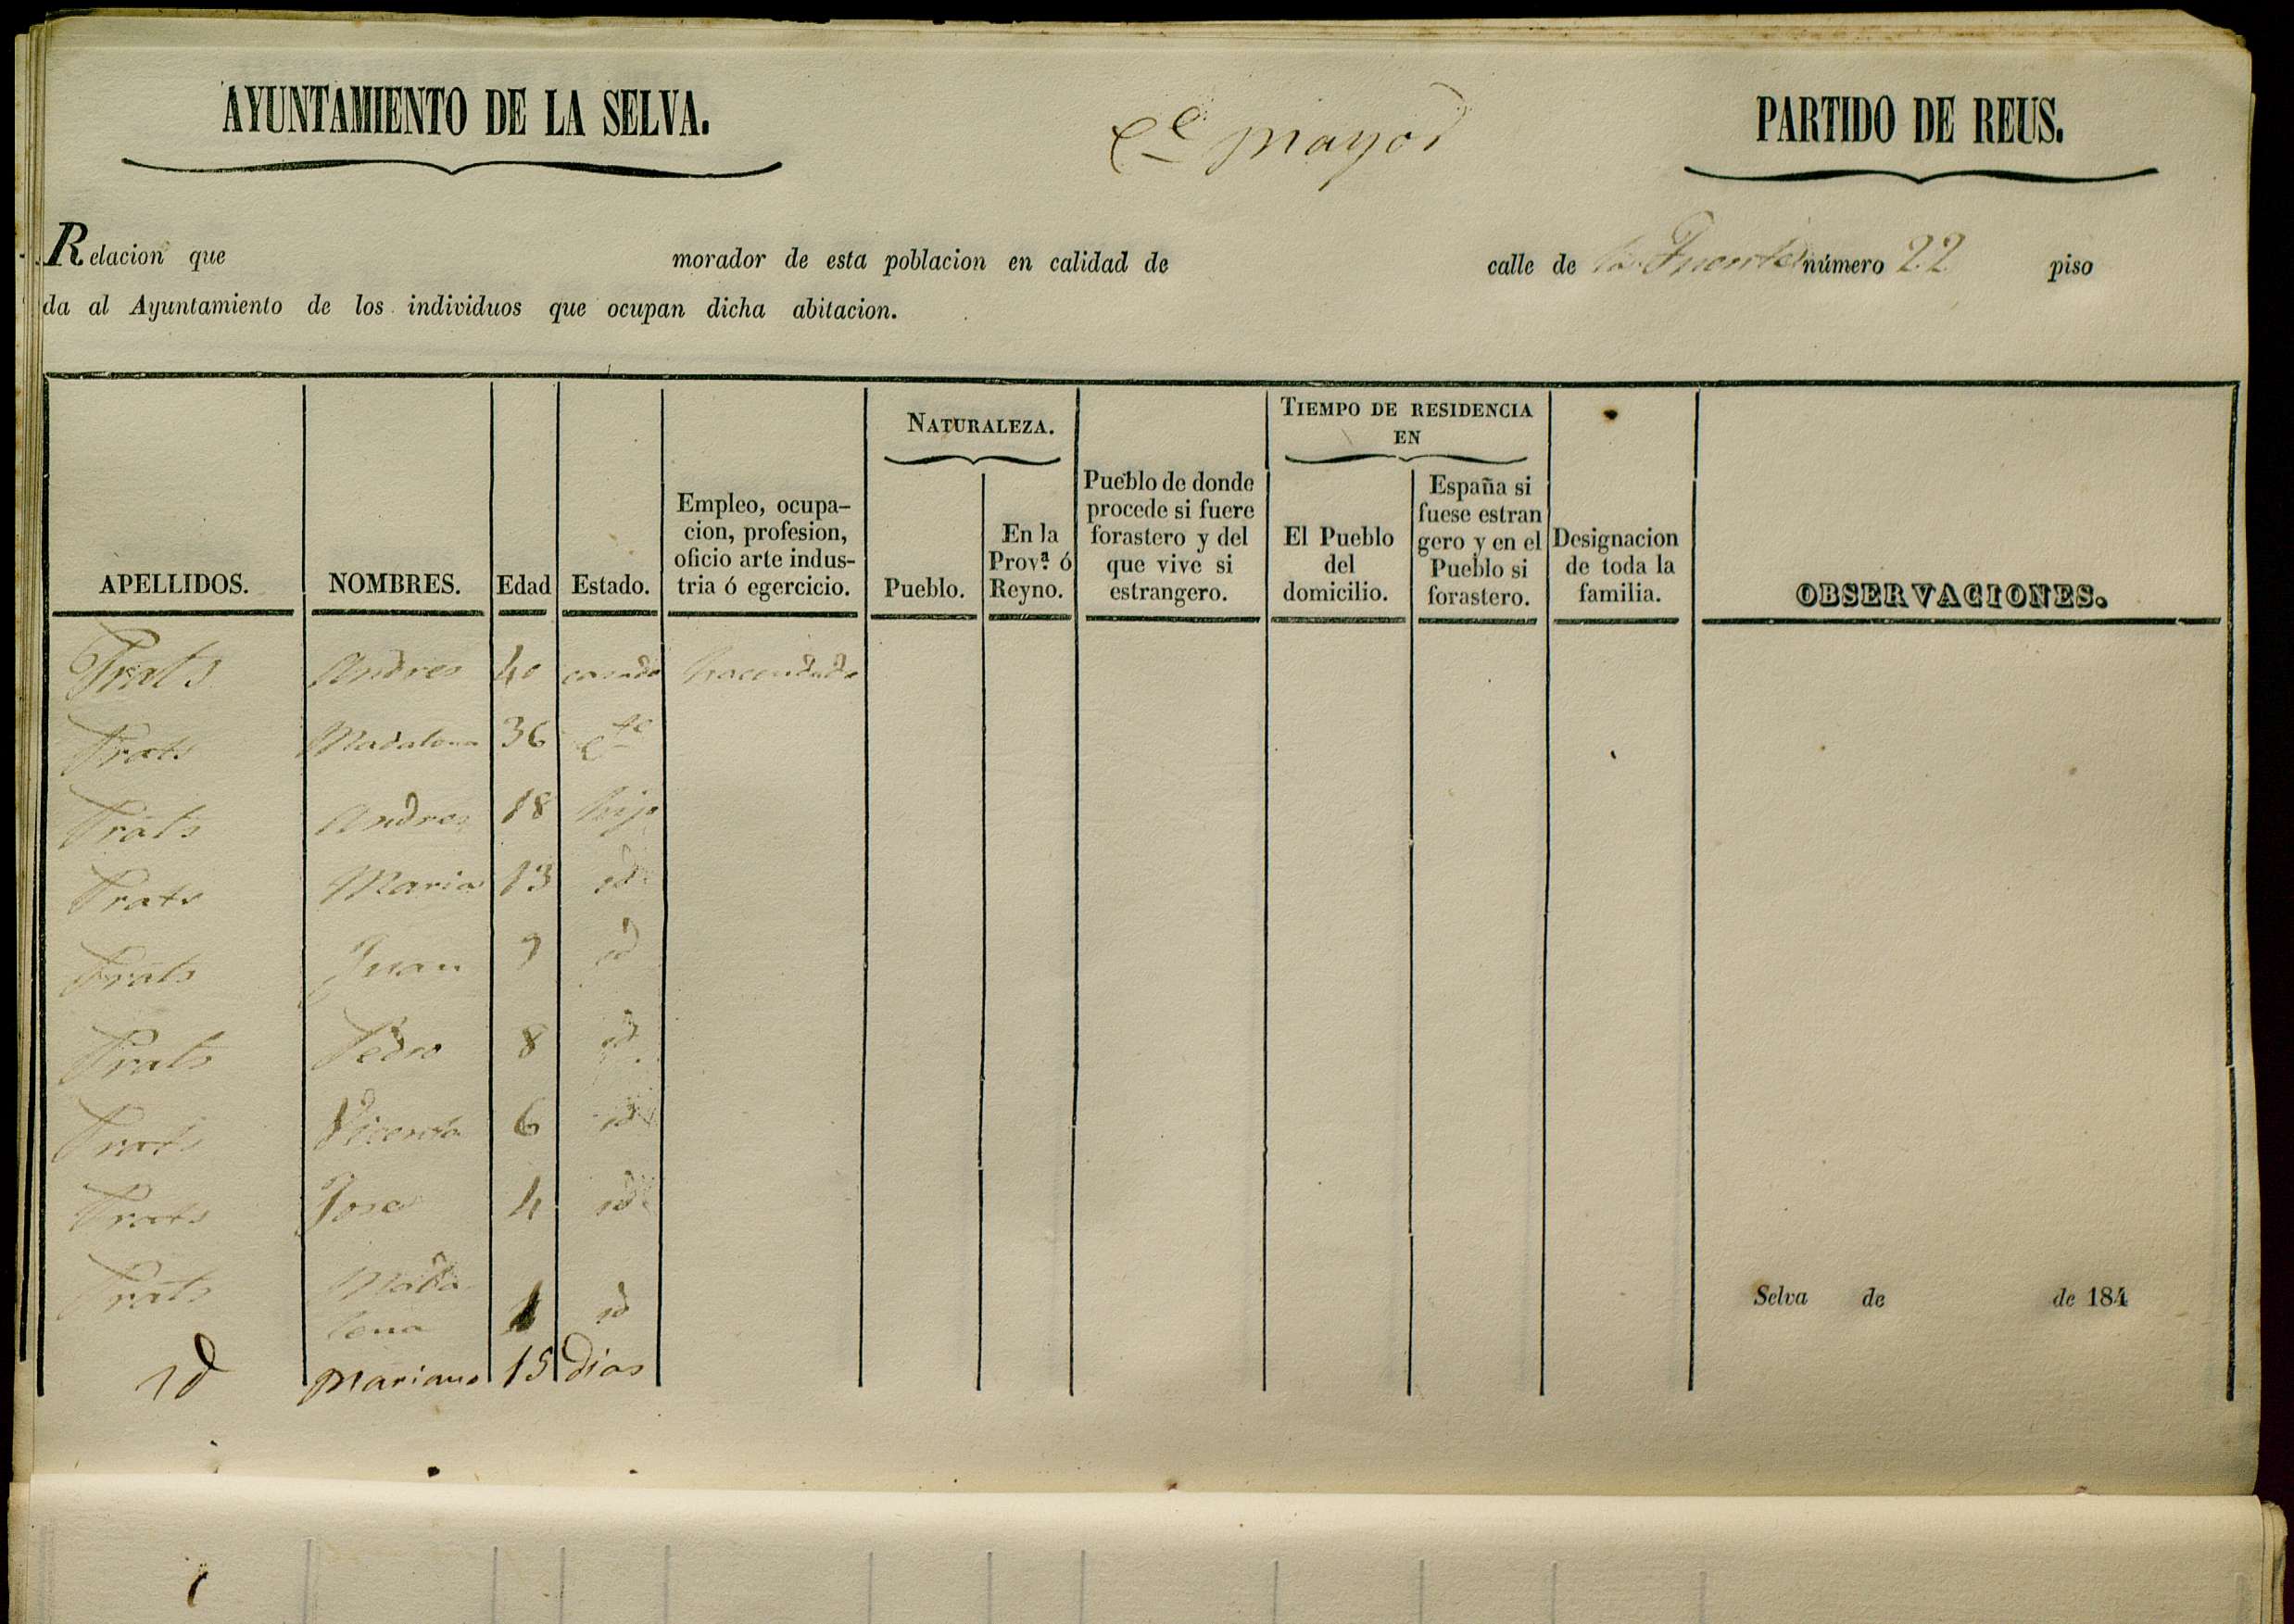 AYUNTAMIENTO DE LA SELVA.
Ce mayor
PARTIDO DE REUS.
Relacion que morador de esta poblacion en calidad de calle de la Fuente número 22 piso
da al Ayuntamiento de los individuos que ocupan dicha abitacion.
APELLIDOS.
NOMBRES.
Edad
Estado.
Empleo, ocupa-
cion, profesion,
oficio arte indus-
tria ó egercicio.
NATURALEZA.
Pueblo.
En la
Prov.ª ó
Reyno.
Pueblo de donde
procede si fuere
forastero y del
que vive si
estrangero.
TIEMPO DE RESIDENCIA
EN
El Pueblo
del
domicilio.
España si
fuese estran
gero y en el
Pueblo si
forastero.
Designacion
de toda la
familia.
OBSERVACIONES.
Prats Andres 40 casado hacendado
Prats Madalena 36
Prats Andres 18 hijo
Prats Maria 13 id
Prats Juan 9 id
Prats Pedro 8 id
Prats Vicenta 6 id
Prats Jose 4 id
Prats Mada
lena 1 id
id Mariano 15 dias
Selva de de 184